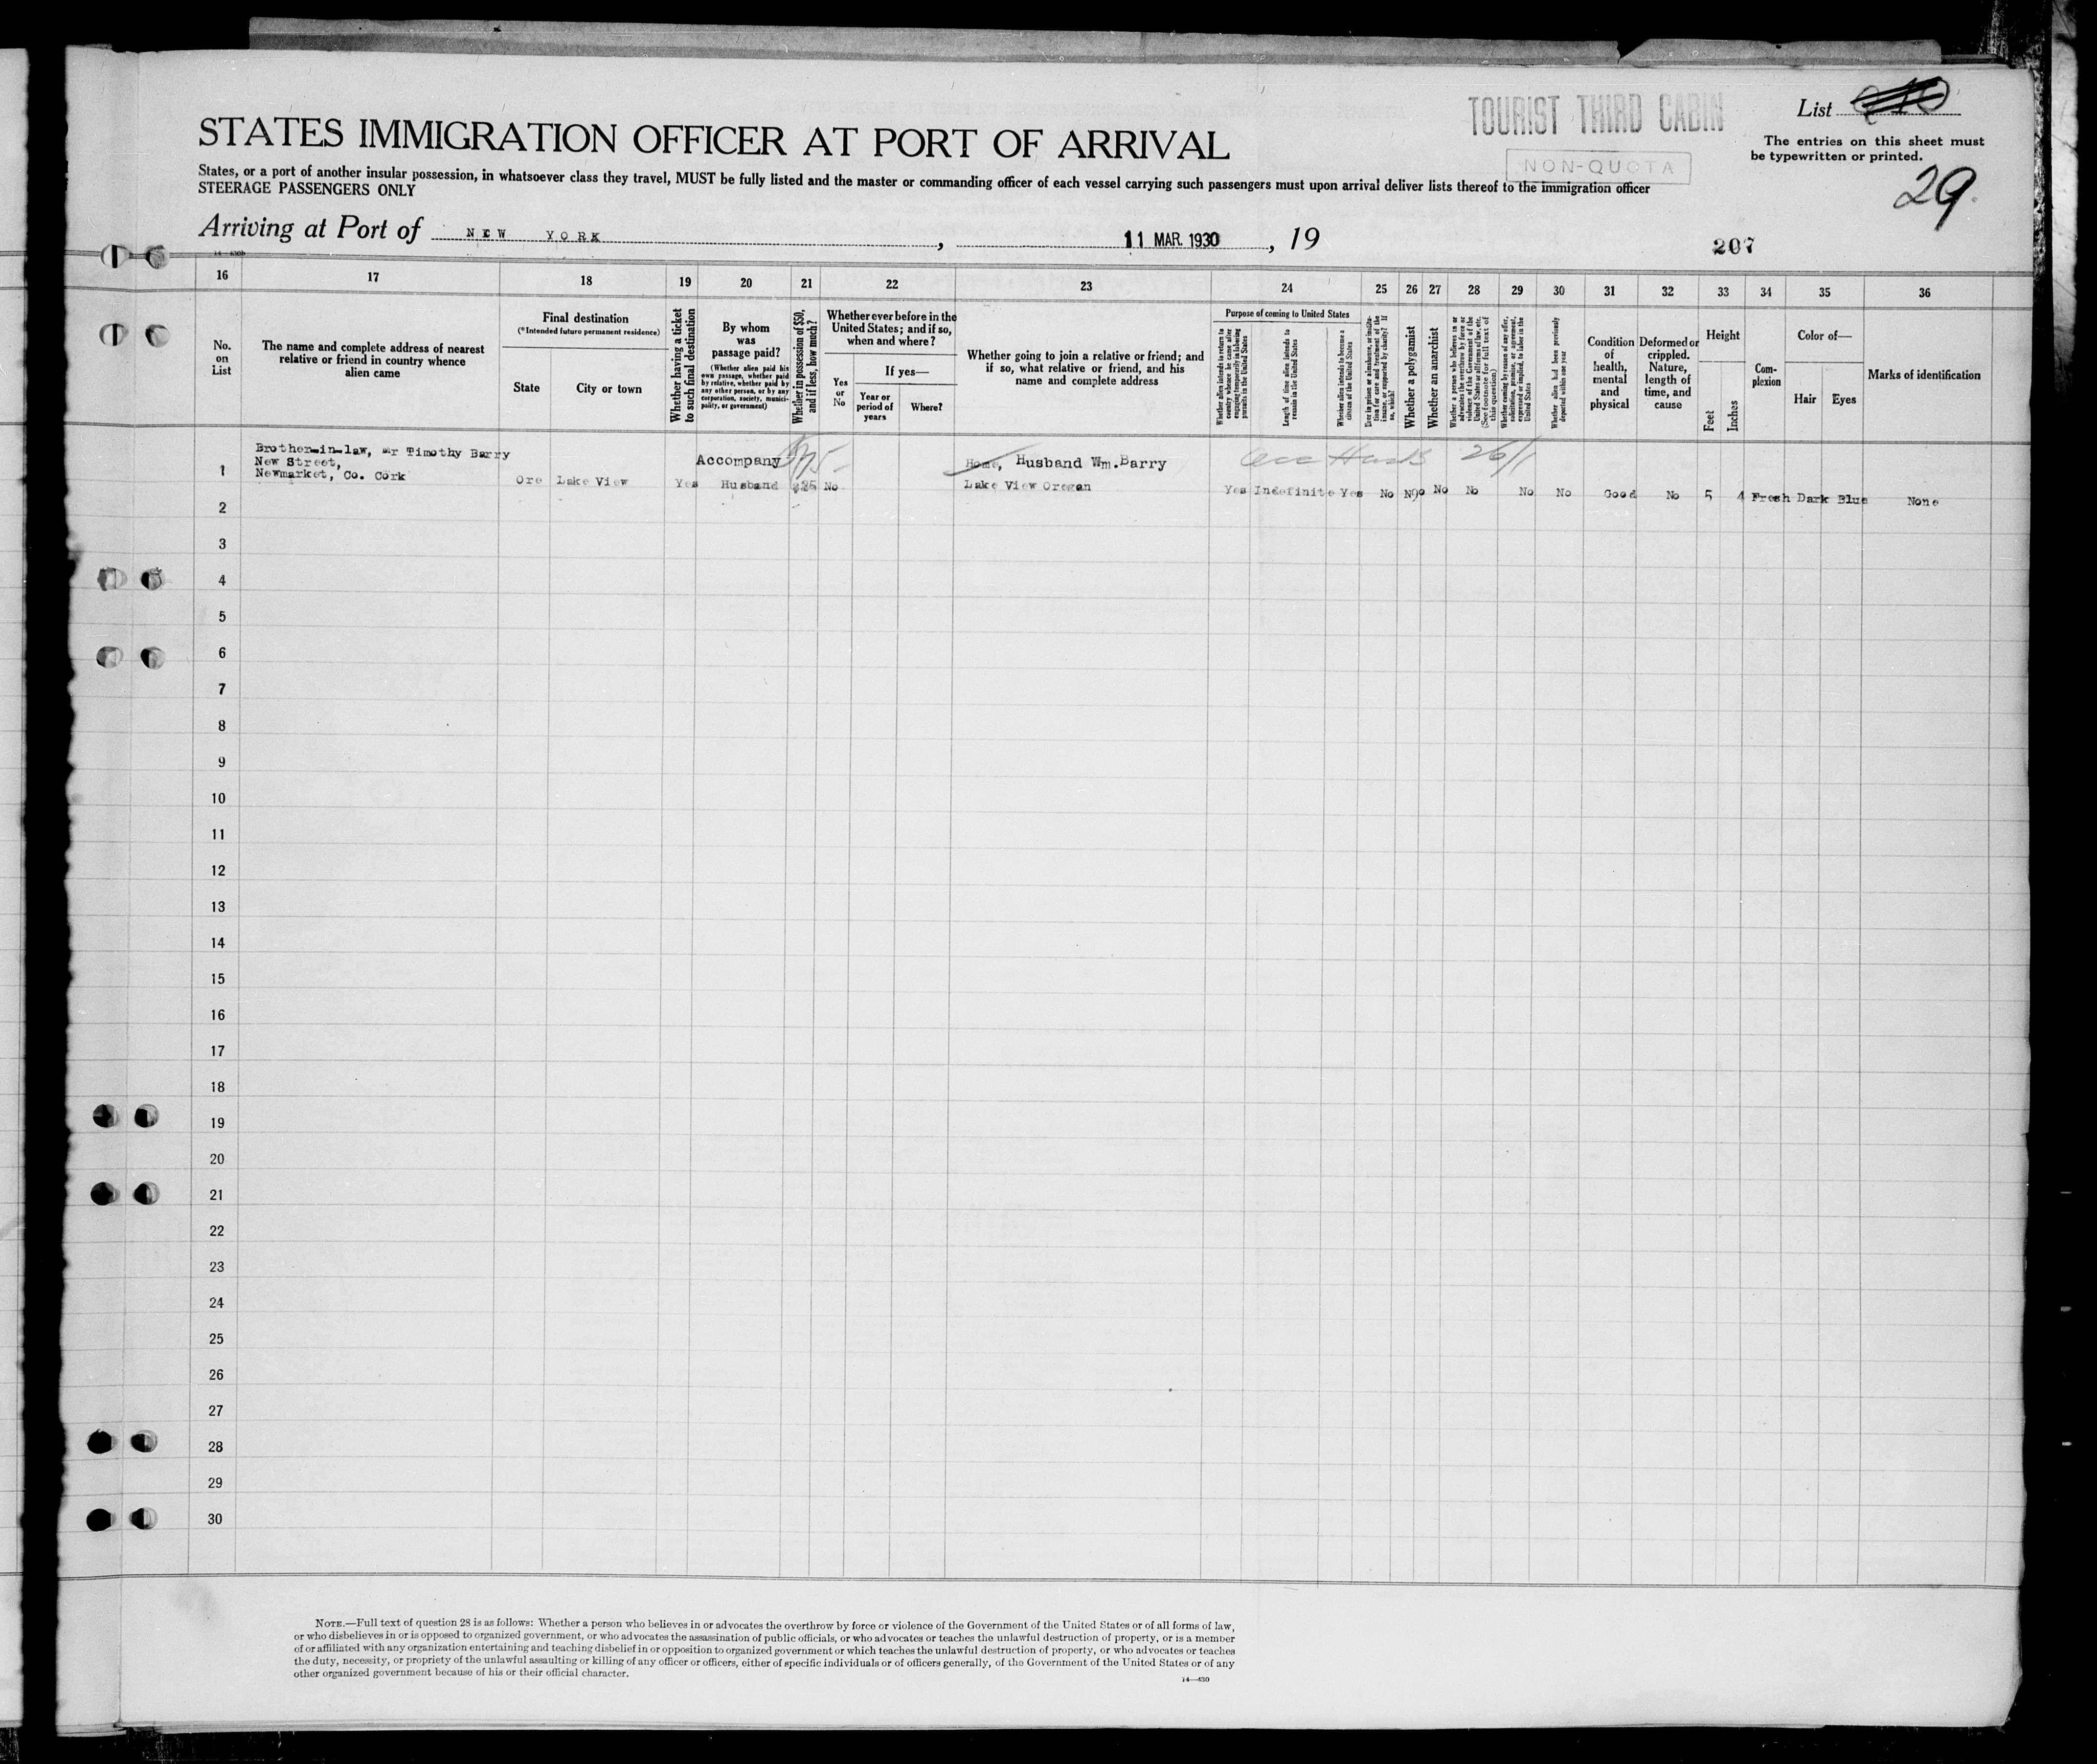 TOURIST THIRD CABIN
List
STATES IMMIGRATION OFFICER AT PORT OF ARRIVAL
The entries on this sheet must
be typewritten or printed.
NON-QUOTA
States, or a port of another insular possession, in whatsoever class they travel, MUST be fully listed and the master or commanding officer of each vessel carrying such passengers must upon arrival deliver lists thereof to the immigration officer
STEERAGE PASSENGERS ONLY
29.
Arriving at Port of NEW YORK, 11 MAR. 1930, 19
207
16 17 18 19 20 21 22 23 24 25 26 27 28 29 30 31 32 33 34 35 36
No. on List
The name and complete address of nearest
relative or friend in country whence
alien came
Final destination
(*Intended future permanent residence)
State
City or town
Whether having a ticket
to such final destination
By whom
was
passage paid?
(Whether alien paid his
own passage, whether paid
by relative, whether paid by
any other person, or by any
corporation, society, munici-
pality, or government)
Whether in possession of $50,
and if less, how much?
Whether ever before in the
United States; and if so,
when and where?
Yes
or
No
If yes—
Year or
period of
years
Where?
Whether going to join a relative or friend; and
if so, what relative or friend, and his
name and complete address
Purpose of coming to United States
Whether alien intends to return to
country whence he came after
engaging temporarily in laboring
pursuits in the United States
Length of time alien intends to
remain in the United States
Whether alien intends to become a
citizen of the United States
Ever in prison or almshouse, or institu-
tion for care and treatment of the
insane, or supported by charity? If
so, which?
Whether a polygamist
Whether an anarchist
Whether a person who believes in or
advocates the overthrow by force or
violence of the Government of the
United States or all forms of law, etc.
(See footnote for full text of
this question)
Whether coming by reason of any offer,
solicitation, promise, or agreement,
expressed or implied, to labor in the
United States
Whether alien had been previously
deported within one year
Condition
of
health,
mental
and
physical
Deformed or
crippled.
Nature,
length of
time, and
cause
Height
Feet
Inches
Com-
plexion
Color of—
Hair
Eyes
Marks of identification
1
Brother-in-law, Mr Timothy Barry
New Street,
Newmarket, Co. Cork
Ore Lake View
Yes
Accompany
Husband
$25
No
Home, Husband Wm. Barry
Lake View Oregon
26/1
Yes Indefinite Yes No No No No No No Good No 5 4 Fresh Dark Blue None
2
3
4
5
6
7
8
9
10
11
12
13
14
15
16
17
18
19
20
21
22
23
24
25
26
27
28
29
30
NOTE.—Full text of question 28 is as follows: Whether a person who believes in or advocates the overthrow by force or violence of the Government of the United States or of all forms of law,
or who disbelieves in or is opposed to organized government, or who advocates the assassination of public officials, or who advocates or teaches the unlawful destruction of property, or is a member
of or affiliated with any organization entertaining and teaching disbelief in or opposition to organized government or which teaches the unlawful destruction of property, or who advocates or teaches
the duty, necessity, or propriety of the unlawful assaulting or killing of any officer or officers, either of specific individuals or of officers generally, of the Government of the United States or of any
other organized government because of his or their official character.
14—430